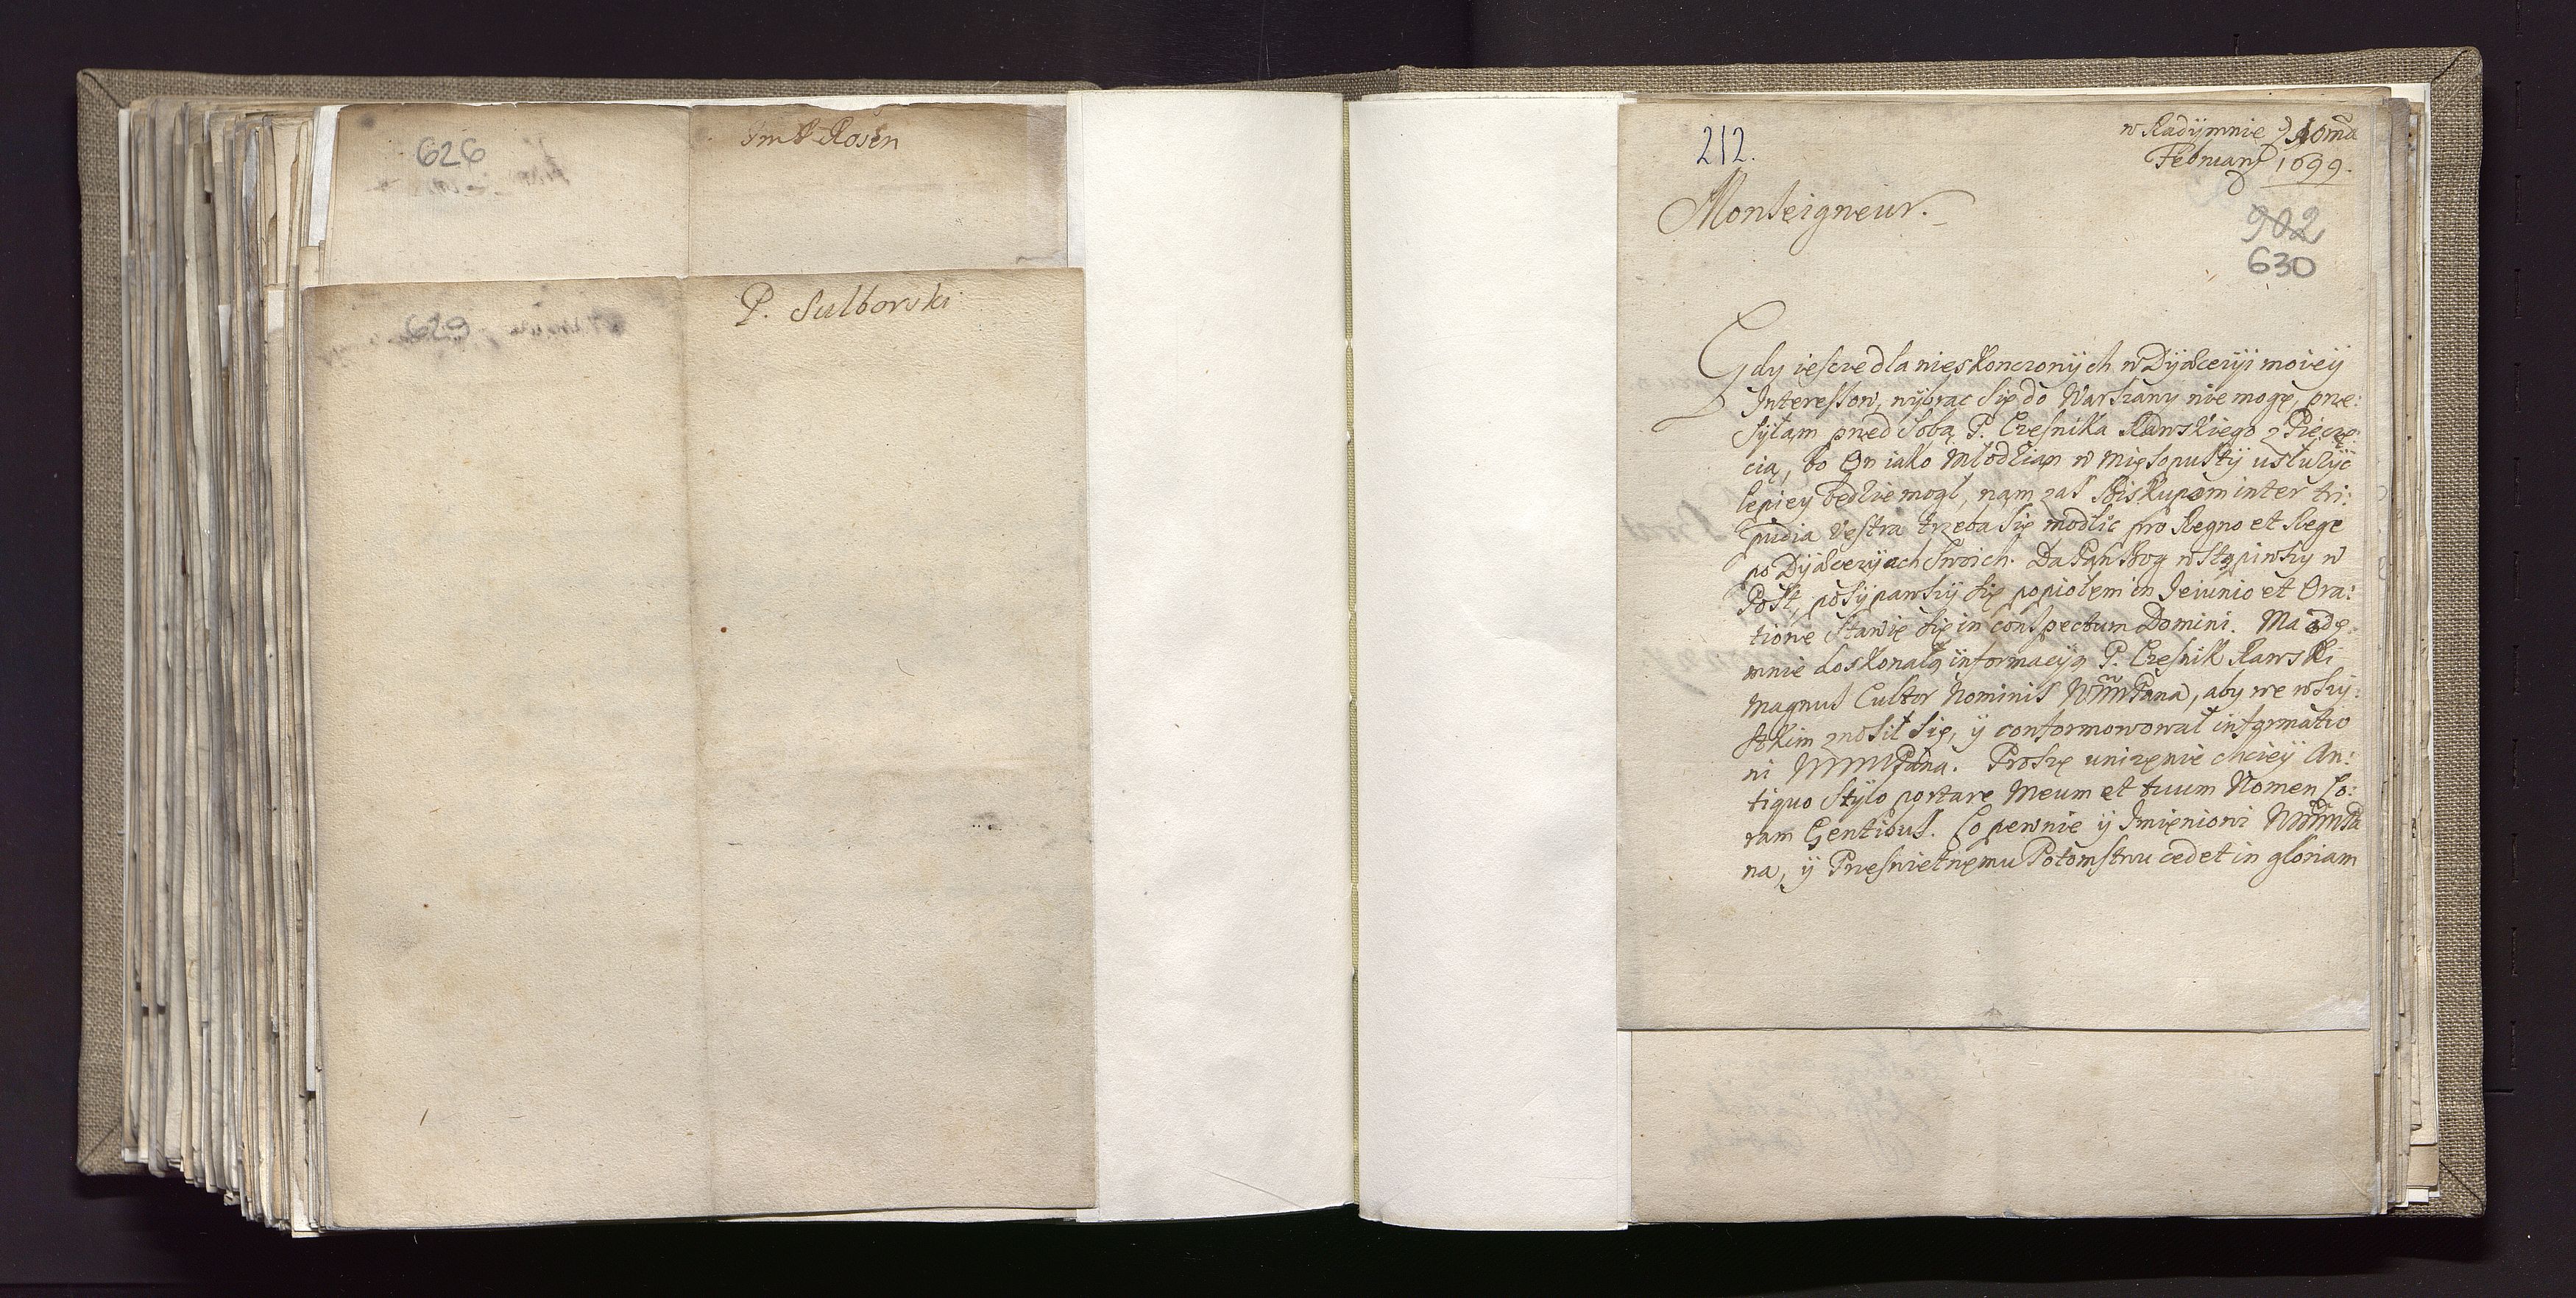 626
Jm P Rosen
629
P. Sulborski
212.
w Radÿmnie 10ma
Februarÿ 1699.
Monseigneur.
902
630
Gdy iescze dla nieskonczonÿch w Dÿæcezÿi moieÿ
Interessow, wÿbrac się do Warszawy nie mogę, prze:
sÿłam przed sobą P. Czesnika Rawskiego z Pieczę:
cią, bo On iako Młodzian w Mięsopustÿ usłuzÿc
lepiey będzie mogł, nam zas Biskupom inter tri:
pudia vestra trzeba się modlic pro Regno et Rege
po Dÿæcezÿach swoich. Da Pan Bog wstąpiwszy w
Post, posÿpawszÿ się popiołem in Jeiunio et Ora:
tione stawię się in conspectum Domini. Ma ode
mnie doskonałą informacÿą P. Czesnik Rawski
Magnus Cultor Nominis WMMPana, aby we wszÿ:
stkim znosił się, ÿ conformowował informatio
ni WMMPana. Proszę unizenie chcieÿ An:
tiquo stÿlo portare Meum et tuum Nomen Co:
ram Gentibus. Co pewnie ÿ Imieniowi WMMPa
na, ÿ Przeswietnemu Potomstwu cedet in gloriam